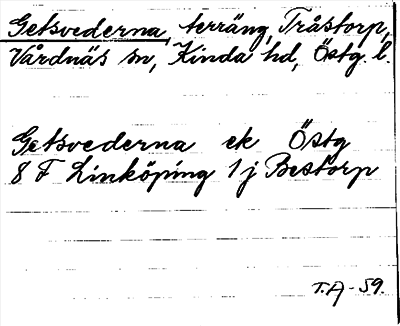 Getsvederna, terräng, Tråstorp,
Vårdnäs sn, Kinda hd, Östg. l.
Getsvederna ek Östg
8 F Linköping 1 j Bestorp
T.A-59.